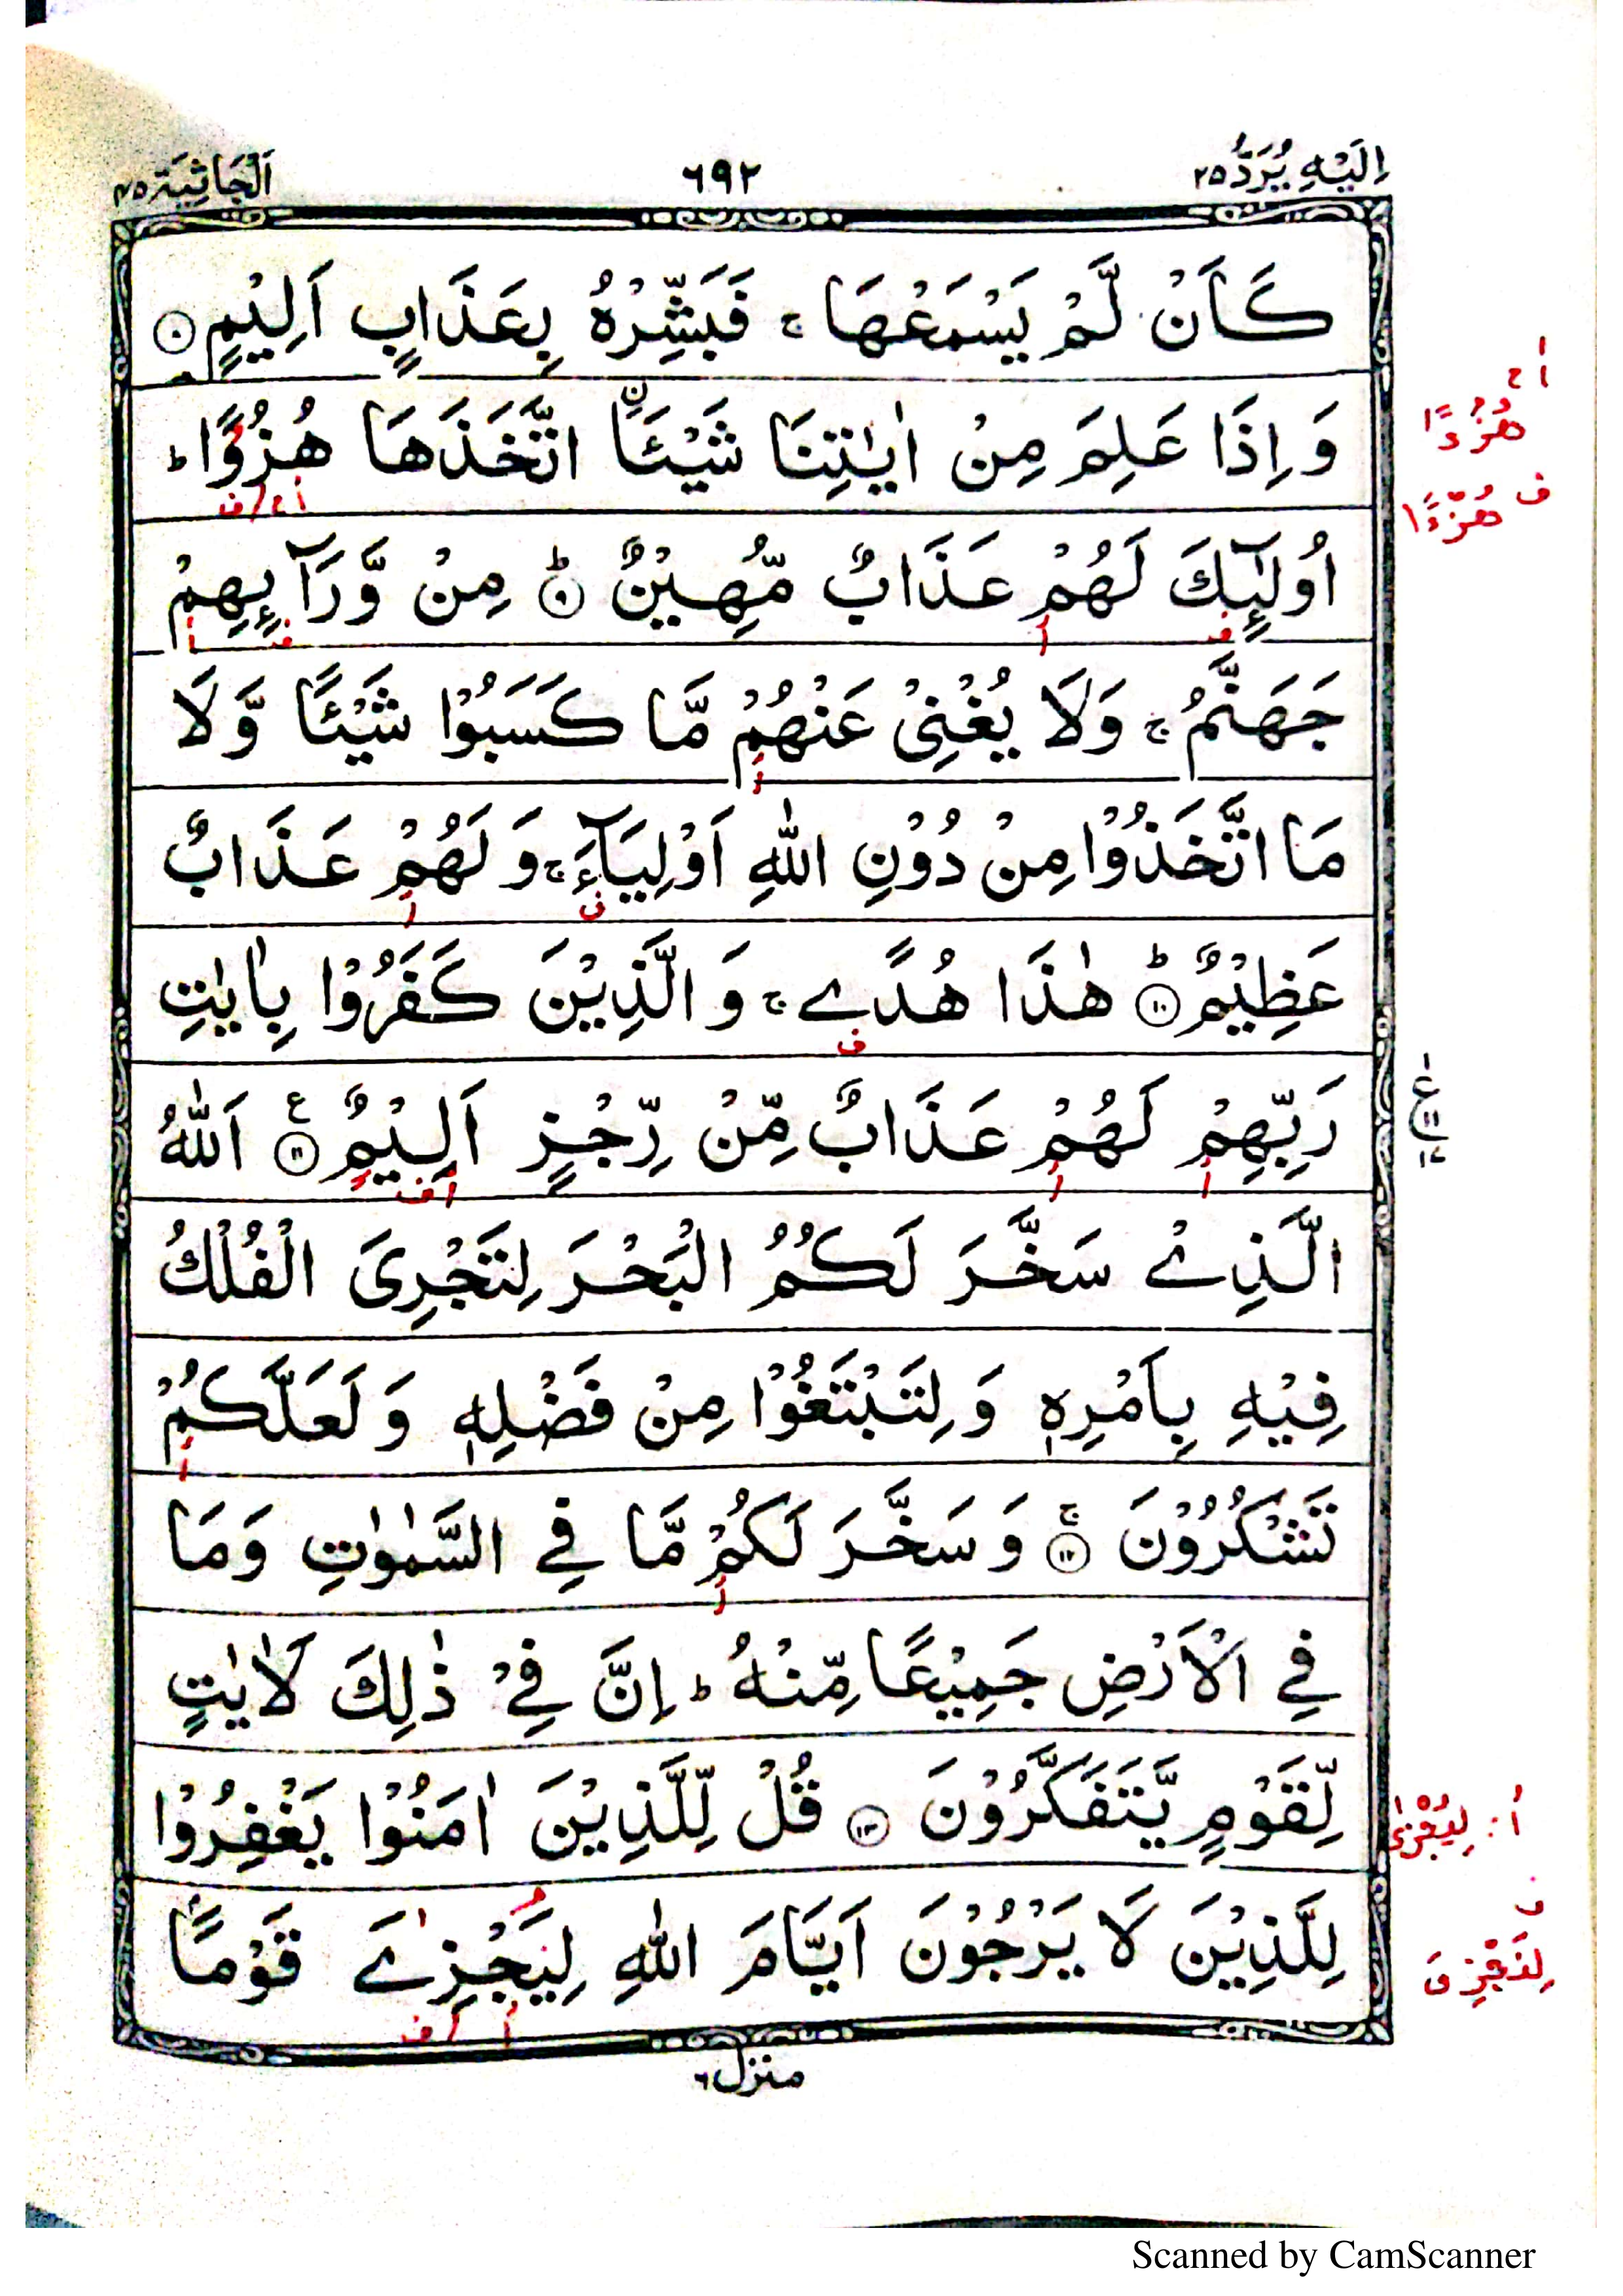 اِلَيْهِ يُرَدُّ ٢٥
٦٩٢
اَلْجَاثِيَة ٤٥
كَاَنْ لَّمْ يَسْمَعْهَا ۚ فَبَشِّرْهُ بِعَذَابٍ اَلِيْمٍ ۝٨
وَ اِذَا عَلِمَ مِنْ اٰيٰتِنَا شَيْـَٔاۨ اتَّخَذَهَا هُزُوًا ؕ
اُولٰٓئِكَ لَهُمْ عَذَابٌ مُّهِيْنٌ ؕ۝٩ مِنْ وَّرَآئِهِمْ
جَهَنَّمُ ۚ وَلَا يُغْنِيْ عَنْهُمْ مَّا كَسَبُوْا شَيْـًٔا وَّلَا
مَا اتَّخَذُوْا مِنْ دُوْنِ اللّٰهِ اَوْلِيَآءَ ۚ وَ لَهُمْ عَذَابٌ
عَظِيْمٌ ؕ۝١٠ هٰذَا هُدًے ۚ وَ الَّذِيْنَ كَفَرُوْا بِاٰيٰتِ
رَبِّهِمْ لَهُمْ عَذَابٌ مِّنْ رِّجْزٍ اَلِيْمٌ ۝١١ ع اَللّٰهُ
الَّذِےْ سَخَّرَ لَكُمُ الْبَحْرَ لِتَجْرِيَ الْفُلْكُ
فِيْهِ بِاَمْرِهٖ وَ لِتَبْتَغُوْا مِنْ فَضْلِهٖ وَ لَعَلَّكُمْ
تَشْكُرُوْنَ ۚ۝١٢ وَ سَخَّرَ لَكُمْ مَّا فِي السَّمٰوٰتِ وَمَا
فِي الْاَرْضِ جَمِيْعًا مِّنْهُ ؕ اِنَّ فِيْ ذٰلِكَ لَاٰيٰتٍ
لِّقَوْمٍ يَّتَفَكَّرُوْنَ ۝١٣ قُلْ لِّلَّذِيْنَ اٰمَنُوْا يَغْفِرُوْا
لِلَّذِيْنَ لَا يَرْجُوْنَ اَيَّامَ اللّٰهِ لِيَجْزِےَ قَوْمًۢا
منزل ٦
هُزُءًا
ف هُزْءًا
أ: لِيُجْزٰى
ف
لِنَجْزِيَ
Scanned by CamScanner